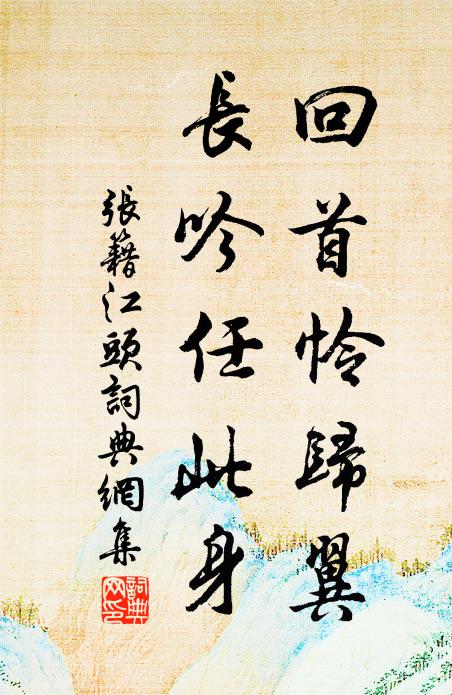 回首怜歸翼
長吟任此身
張籍江頭詞典網集
詞典